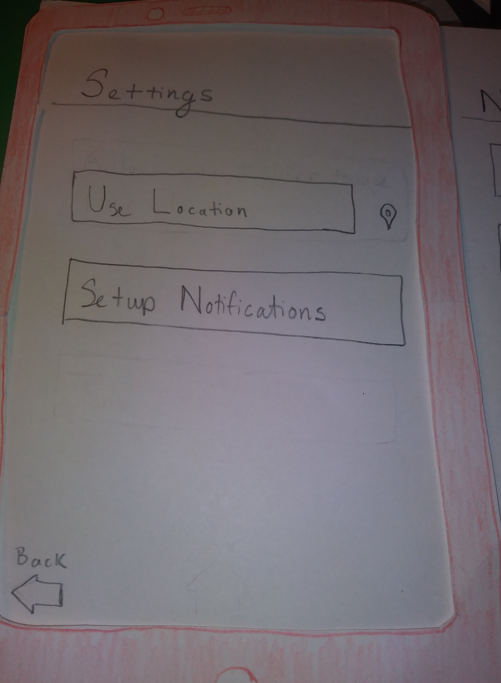 Settings
Use Location
Setup Notifications
Back
N